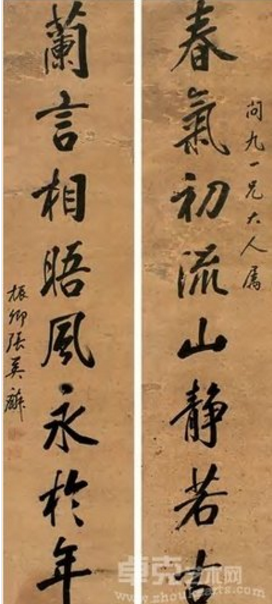 春氣初流山静若古
問九一兄大人屬
蘭言相晤風永於年
振卿張英麟
卓克艺术网